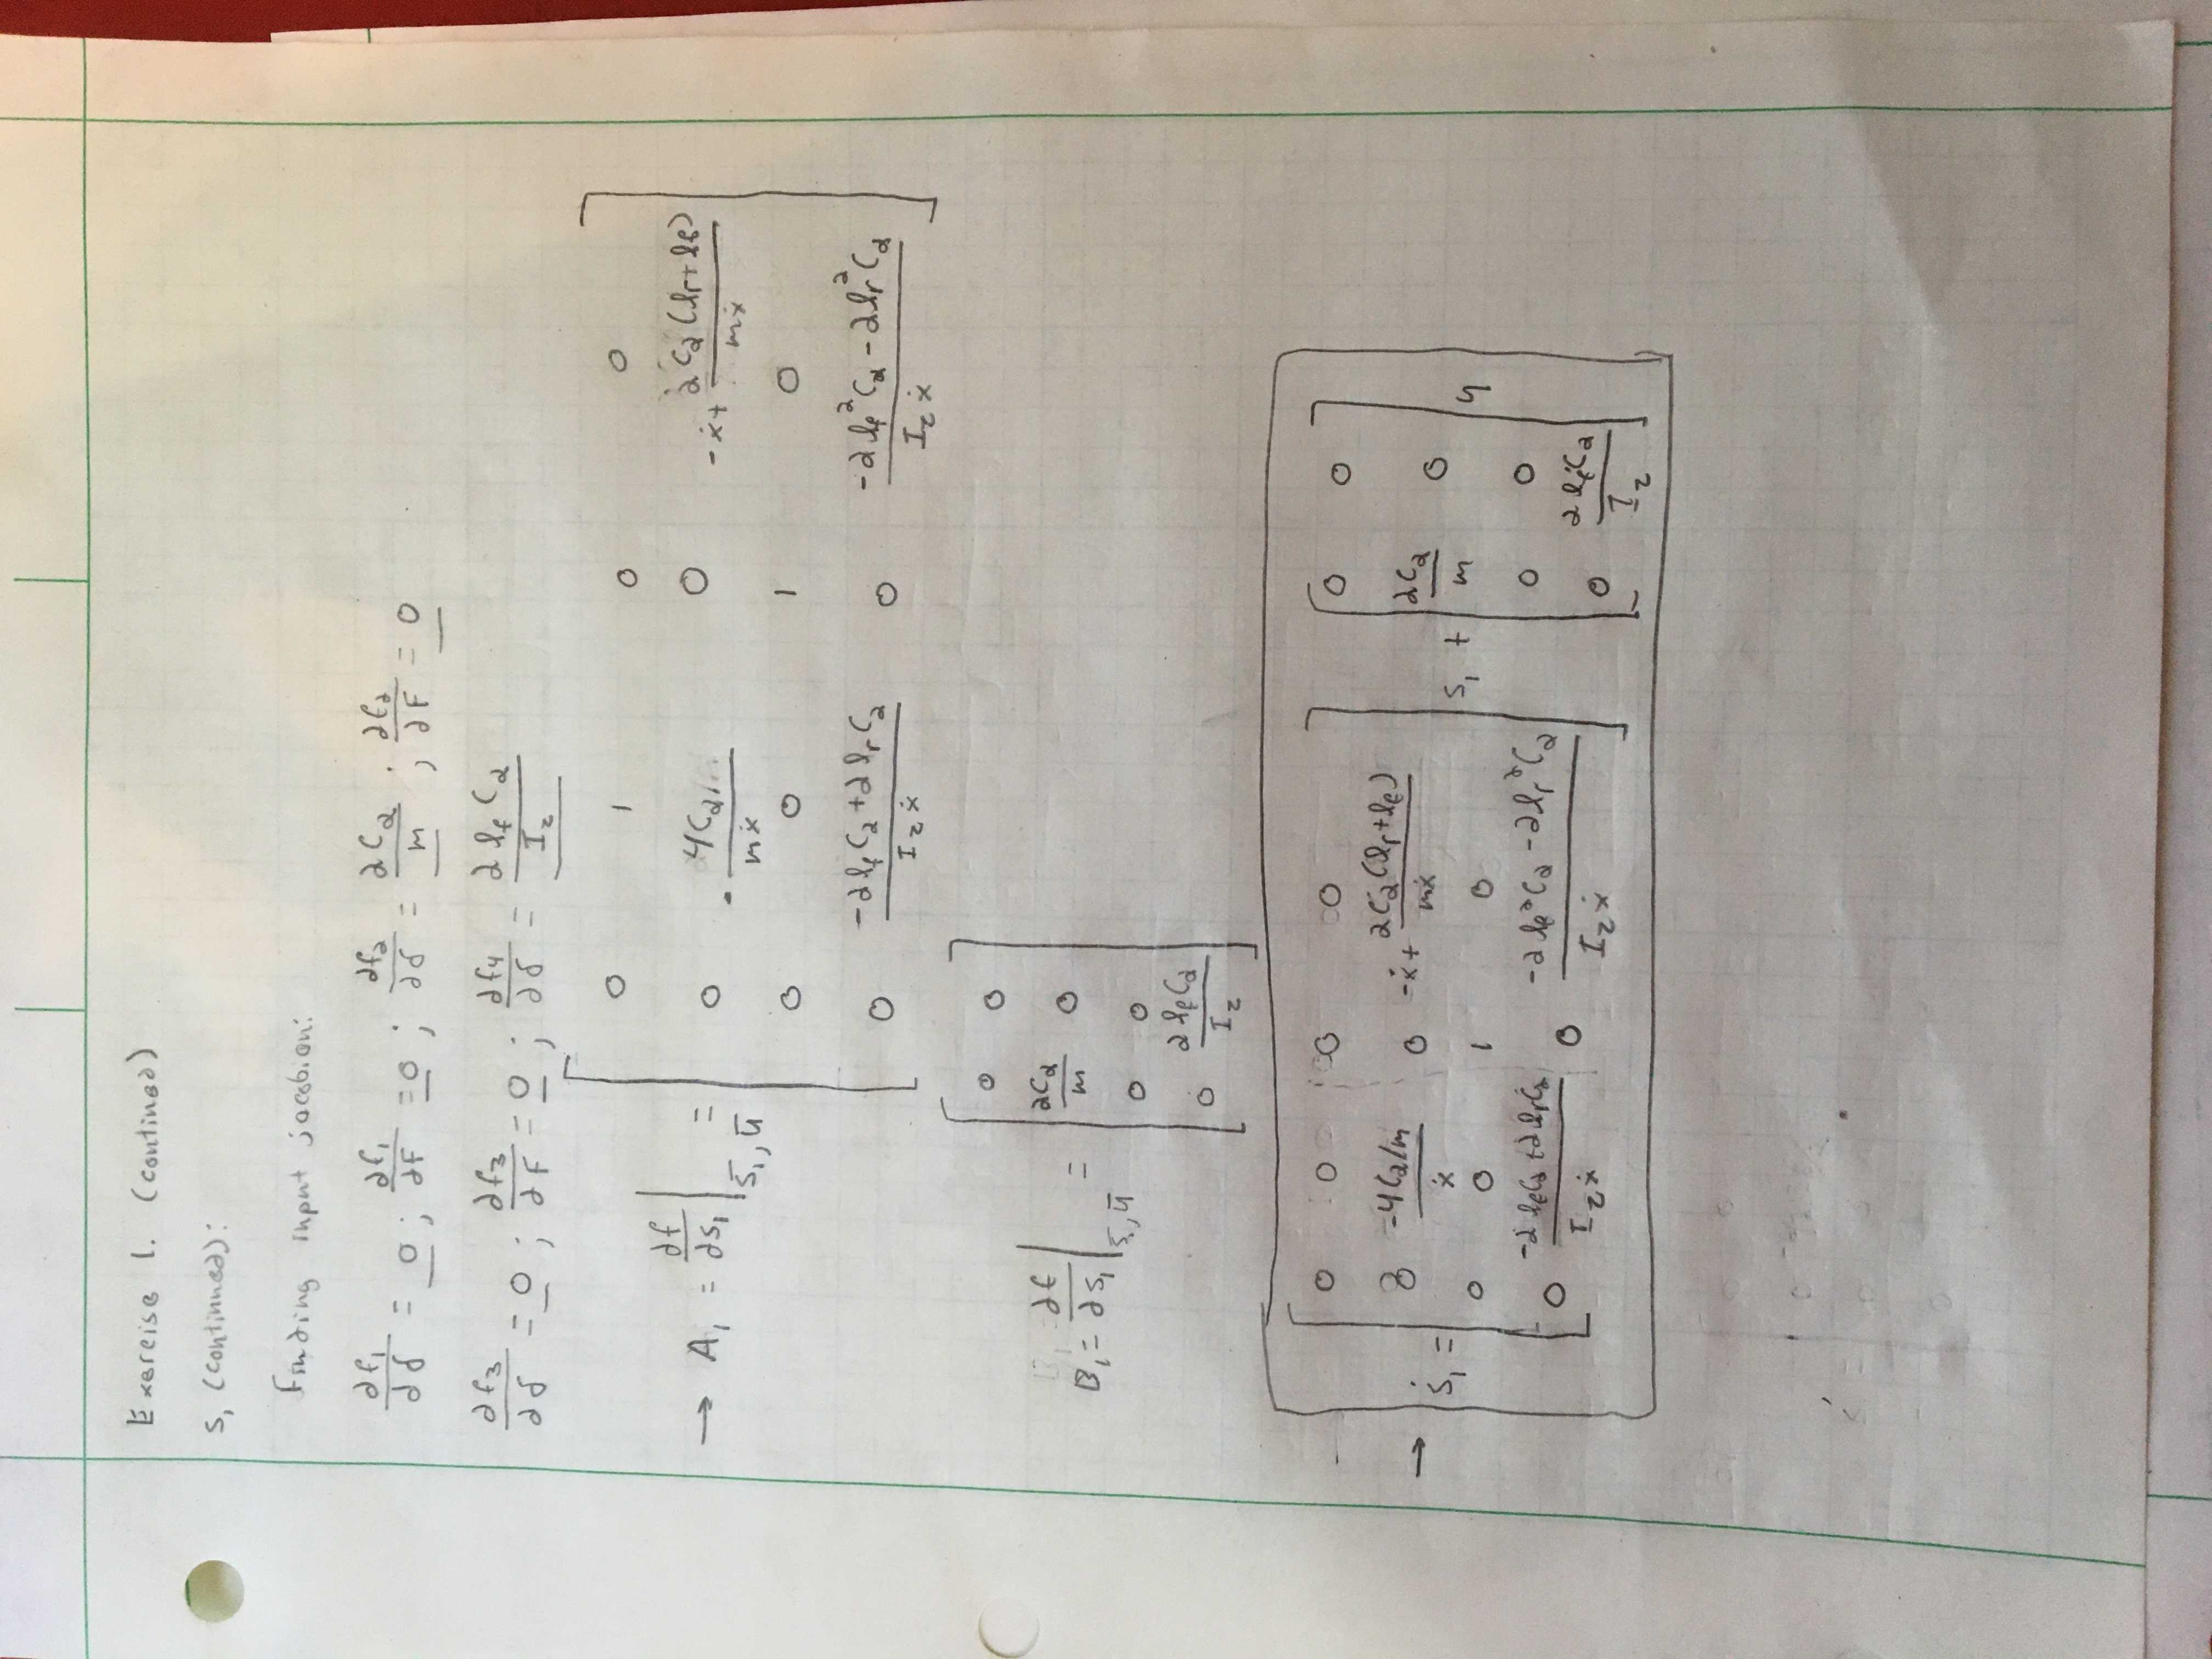 Exercise 1. (contined)
s₁ (continued):
Finding input jacobian:
∂f₁/∂δ = 0 ; ∂f₁/∂F = 0 ; ∂f₂/∂δ = 2Cα/m ; ∂f₂/∂F = 0
∂f₃/∂δ = 0 ; ∂f₃/∂F = 0 ; ∂f₄/∂δ = 2 l_f Cα / I_z
→ A₁ = ∂f/∂s₁ | s̄₁, ū =
[ 0 1 0 0
0 -4Cα/(mẋ) 0 -ẋ + 2Cα(l_r + l_f)/(mẋ)
0 0 1 0
0 (-2 l_f Cα + 2 l_r Cα)/(I_z ẋ) 0 (-2 l_f² Cα - 2 l_r² Cα)/(I_z ẋ) ]
B₁ = ∂f/∂s₁ | s̄₁, ū =
[ 0 0
2Cα/m 0
0 0
0 2 l_f Cα / I_z ]
→ ṡ₁ =
[ 0 0 0 0
0 (-4Cα/m)/ẋ 0 -ẋ + 2Cα(l_r + l_f)/(mẋ)
0 0 1 0
0 (-2 l_f Cα + 2 l_r Cα)/(I_z ẋ) 0 (-2 l_f² Cα - 2 l_r² Cα)/(I_z ẋ) ] s₁ +
[ 0 0
2Cα/m 0
0 0
0 2 l_f Cα / I_z ] u